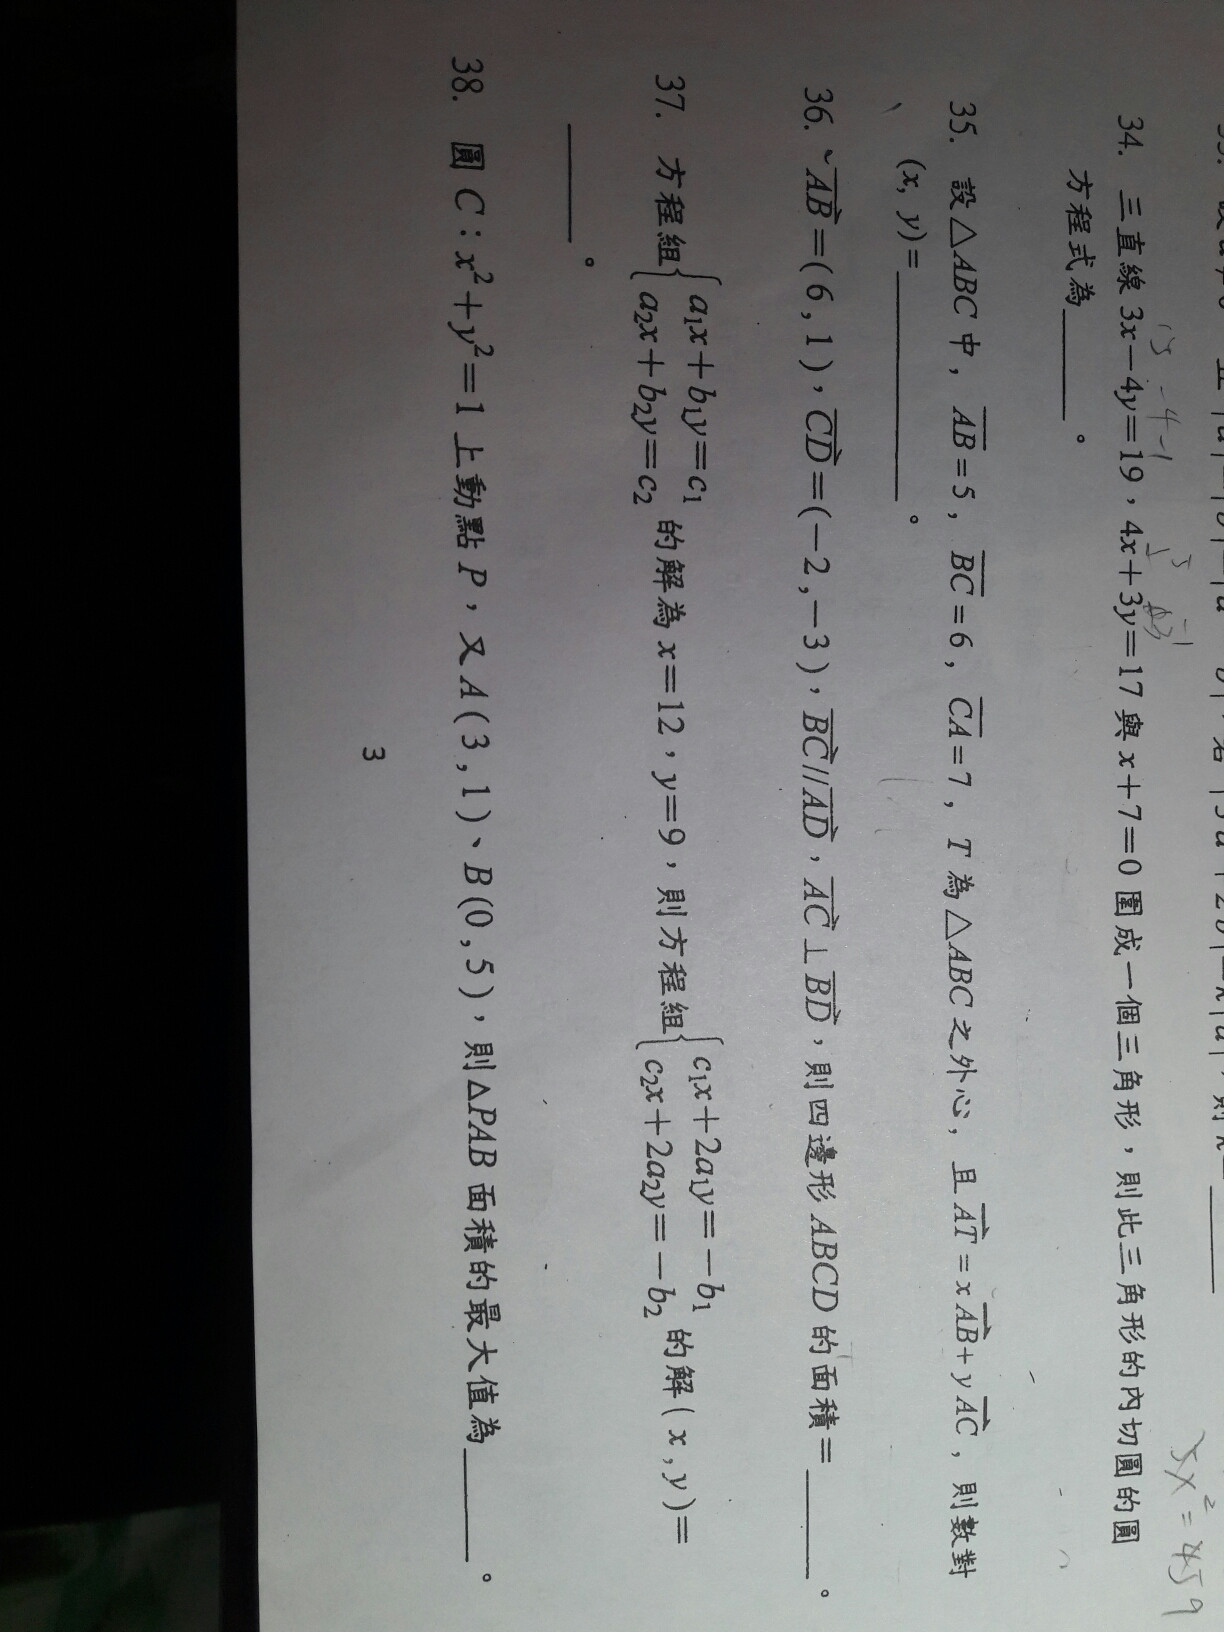 34. 三直線 3x－4y＝19，4x＋3y＝17 與 x＋7＝0 圍成一個三角形，則此三角形的內切圓的圓
方程式為________。
35. 設△ABC 中，AB＝5，BC＝6，CA＝7，T 為△ABC 之外心，且 AT＝xAB＋yAC，則數對
(x, y)＝________。
36. AB＝(6,1)，CD＝(－2,－3)，BC//AD，AC⊥BD，則四邊形 ABCD 的面積＝________。
37. 方程組{a₁x＋b₁y＝c₁ a₂x＋b₂y＝c₂ 的解為 x＝12，y＝9，則方程組{c₁x＋2a₁y＝－b₁ c₂x＋2a₂y＝－b₂ 的解(x,y)＝
________。
38. 圓 C：x²＋y²＝1 上動點 P，又 A(3,1)、B(0,5)，則△PAB 面積的最大值為________。
3